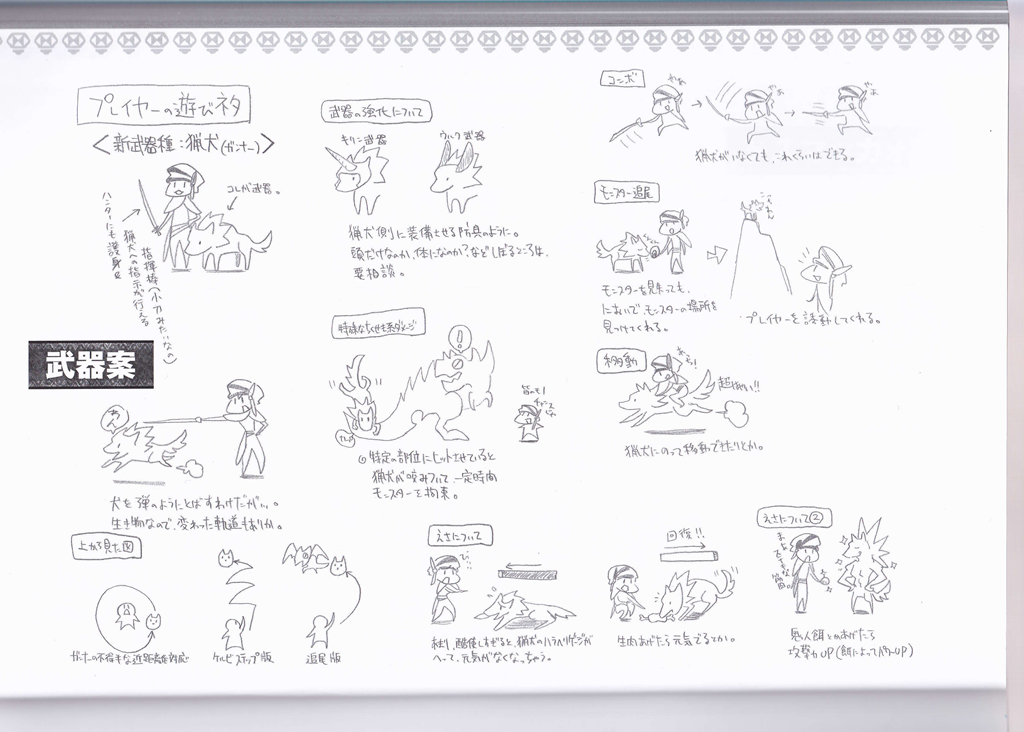 プレイヤーの遊びネタ
<新武器種:猟犬(ガンナー)>
コレが武器。
指揮棒(小刀みたいなの)
猟犬への指示が行える
ハンターにも護身を
武器案
犬を弾のようにとばすわけだがい。
生き物なので、変わった軌道もありか。
上から見た図
ガンナーの不得手な近距離を対応
ケルビステップ版
追尾版
武器の強化について
キリン武器
ウルク武器
猟犬側に装備させる防具のように。
頭だけなのか、体になのか?などしぼるところは、
要相談。
特殊な
ダメージ
!
特定の部位にヒットさせていると
猟犬が咬みついて、一定時間
モンスターを拘束。
えさについて
あまり、酷使しすぎると、猟犬のハラペリゲージが
へって、元気がなくなっちゃう。
回復!!
生肉あげたら元気でるとか。
えさについて②
鬼人餌とかあげたら
攻撃力UP(餌によってパワーUP)
コンボ
猟犬がいなくても、これくらいはできる。
モンスター追尾
モンスターを見失っても、
においで、モンスターの場所を
見つけてくれる。
プレイヤーを誘動してくれる。
移動
超速い!!
猟犬にのって移動できたりとか。